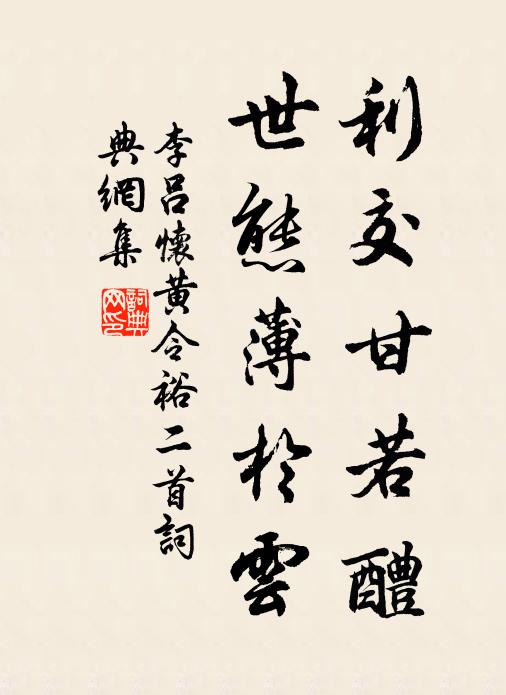 利交甘若醴
世態薄於雲
李呂懷黃令裕二首詞
典網集
詞典網印